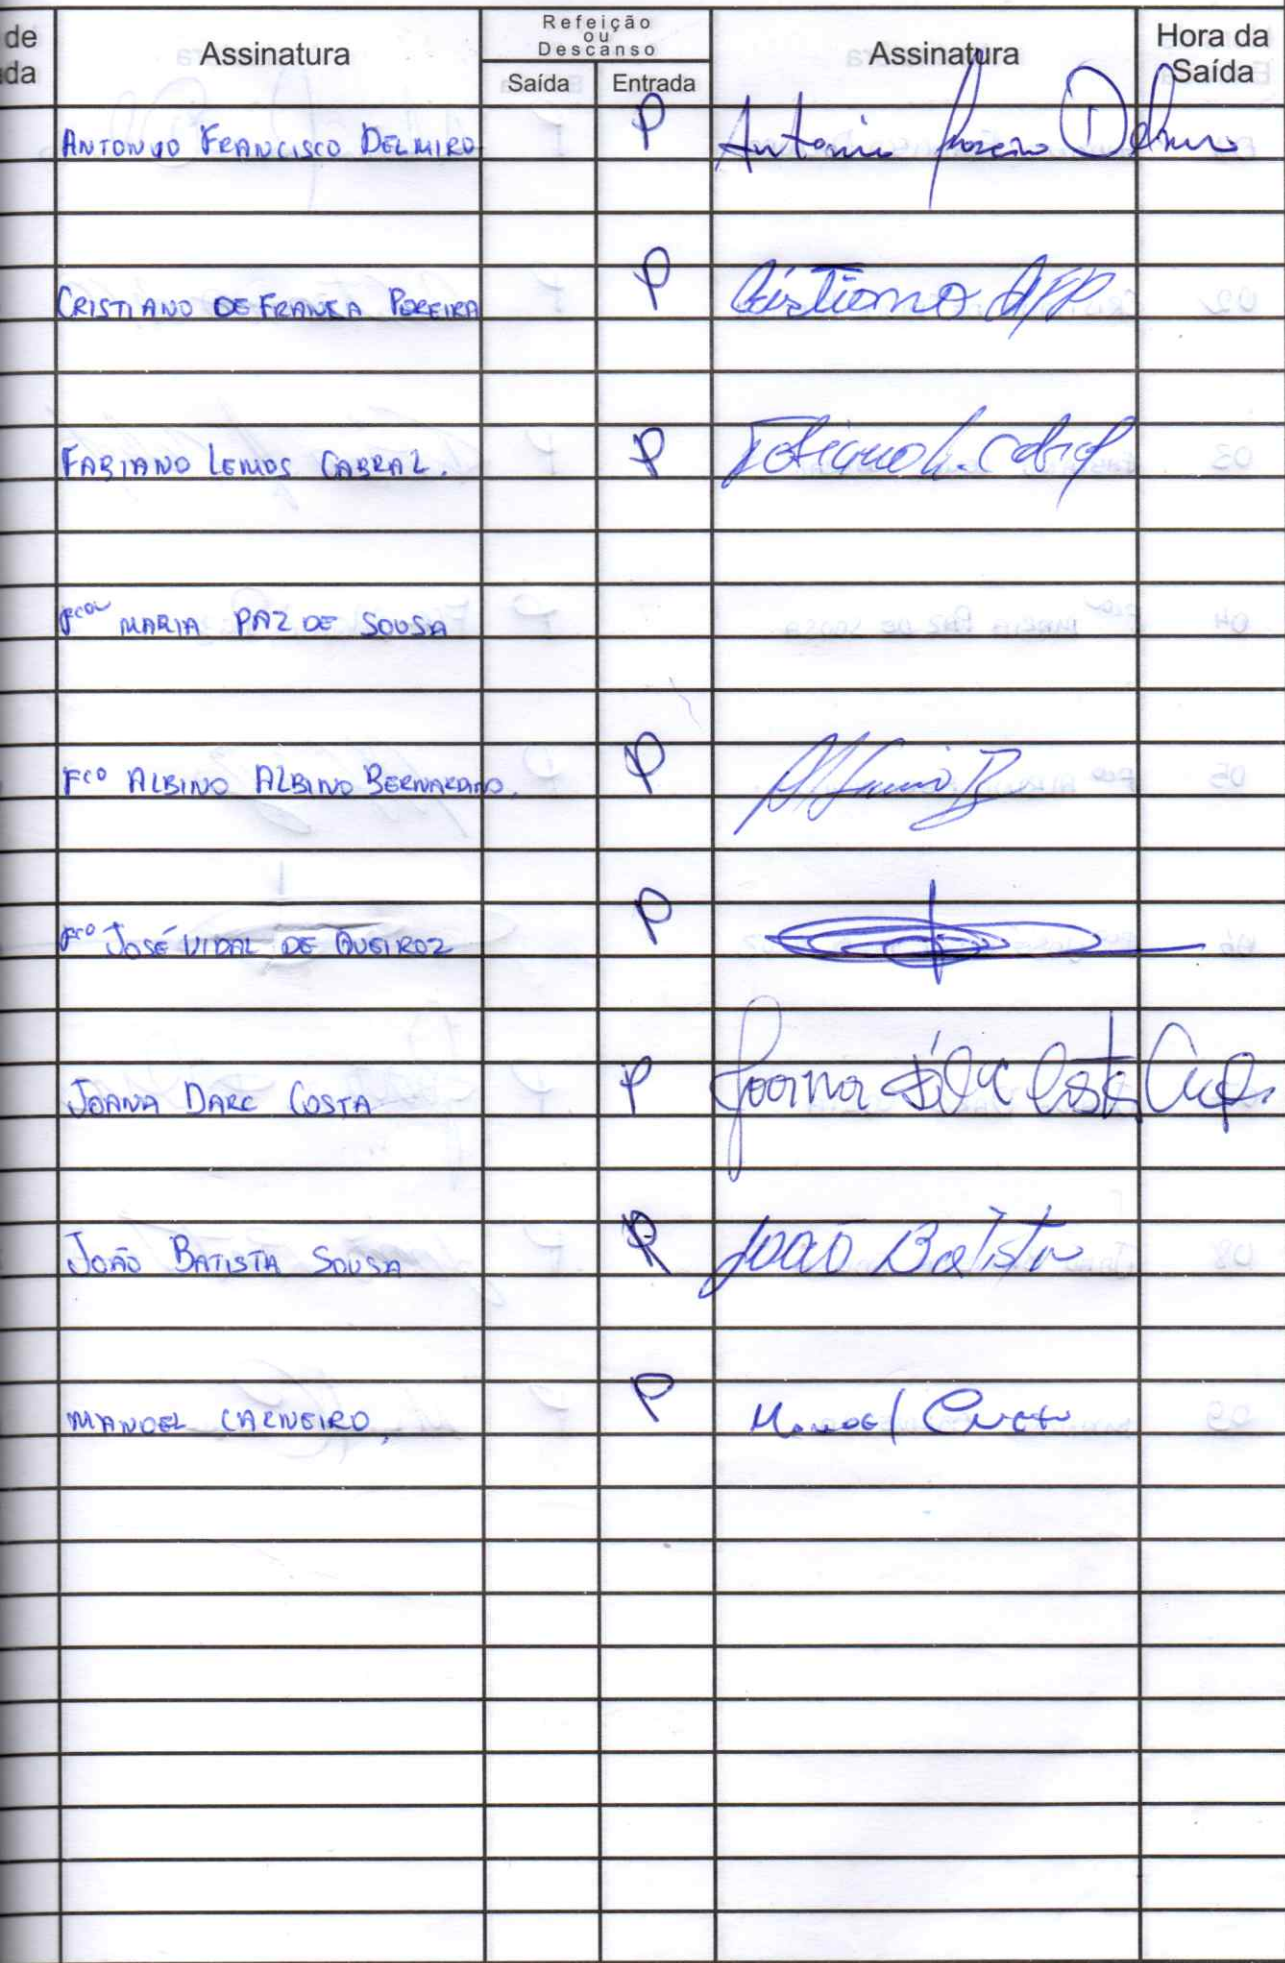 de
da
Assinatura
Refeição
ou
Descanso
Saída
Entrada
Assinatura
Hora da
Saída
ANTONIO FRANCISCO DELMIRO P Antonio Delmiro
CRISTIANO DE FRANÇA PEREIRA P Cristiano DFP
FABIANO LEMOS CABRAL. P Fabiano L. Cabral
Fca MARIA PAZ DE SOUSA
Fco ALBINO ALBINO BERNARDINO. P
Fco JOSÉ VIDAL DE QUEIROZ P
JOANA DARC COSTA P Joana
JOÃO BATISTA SOUSA João Batista
MANOEL CARNEIRO, P Manoel